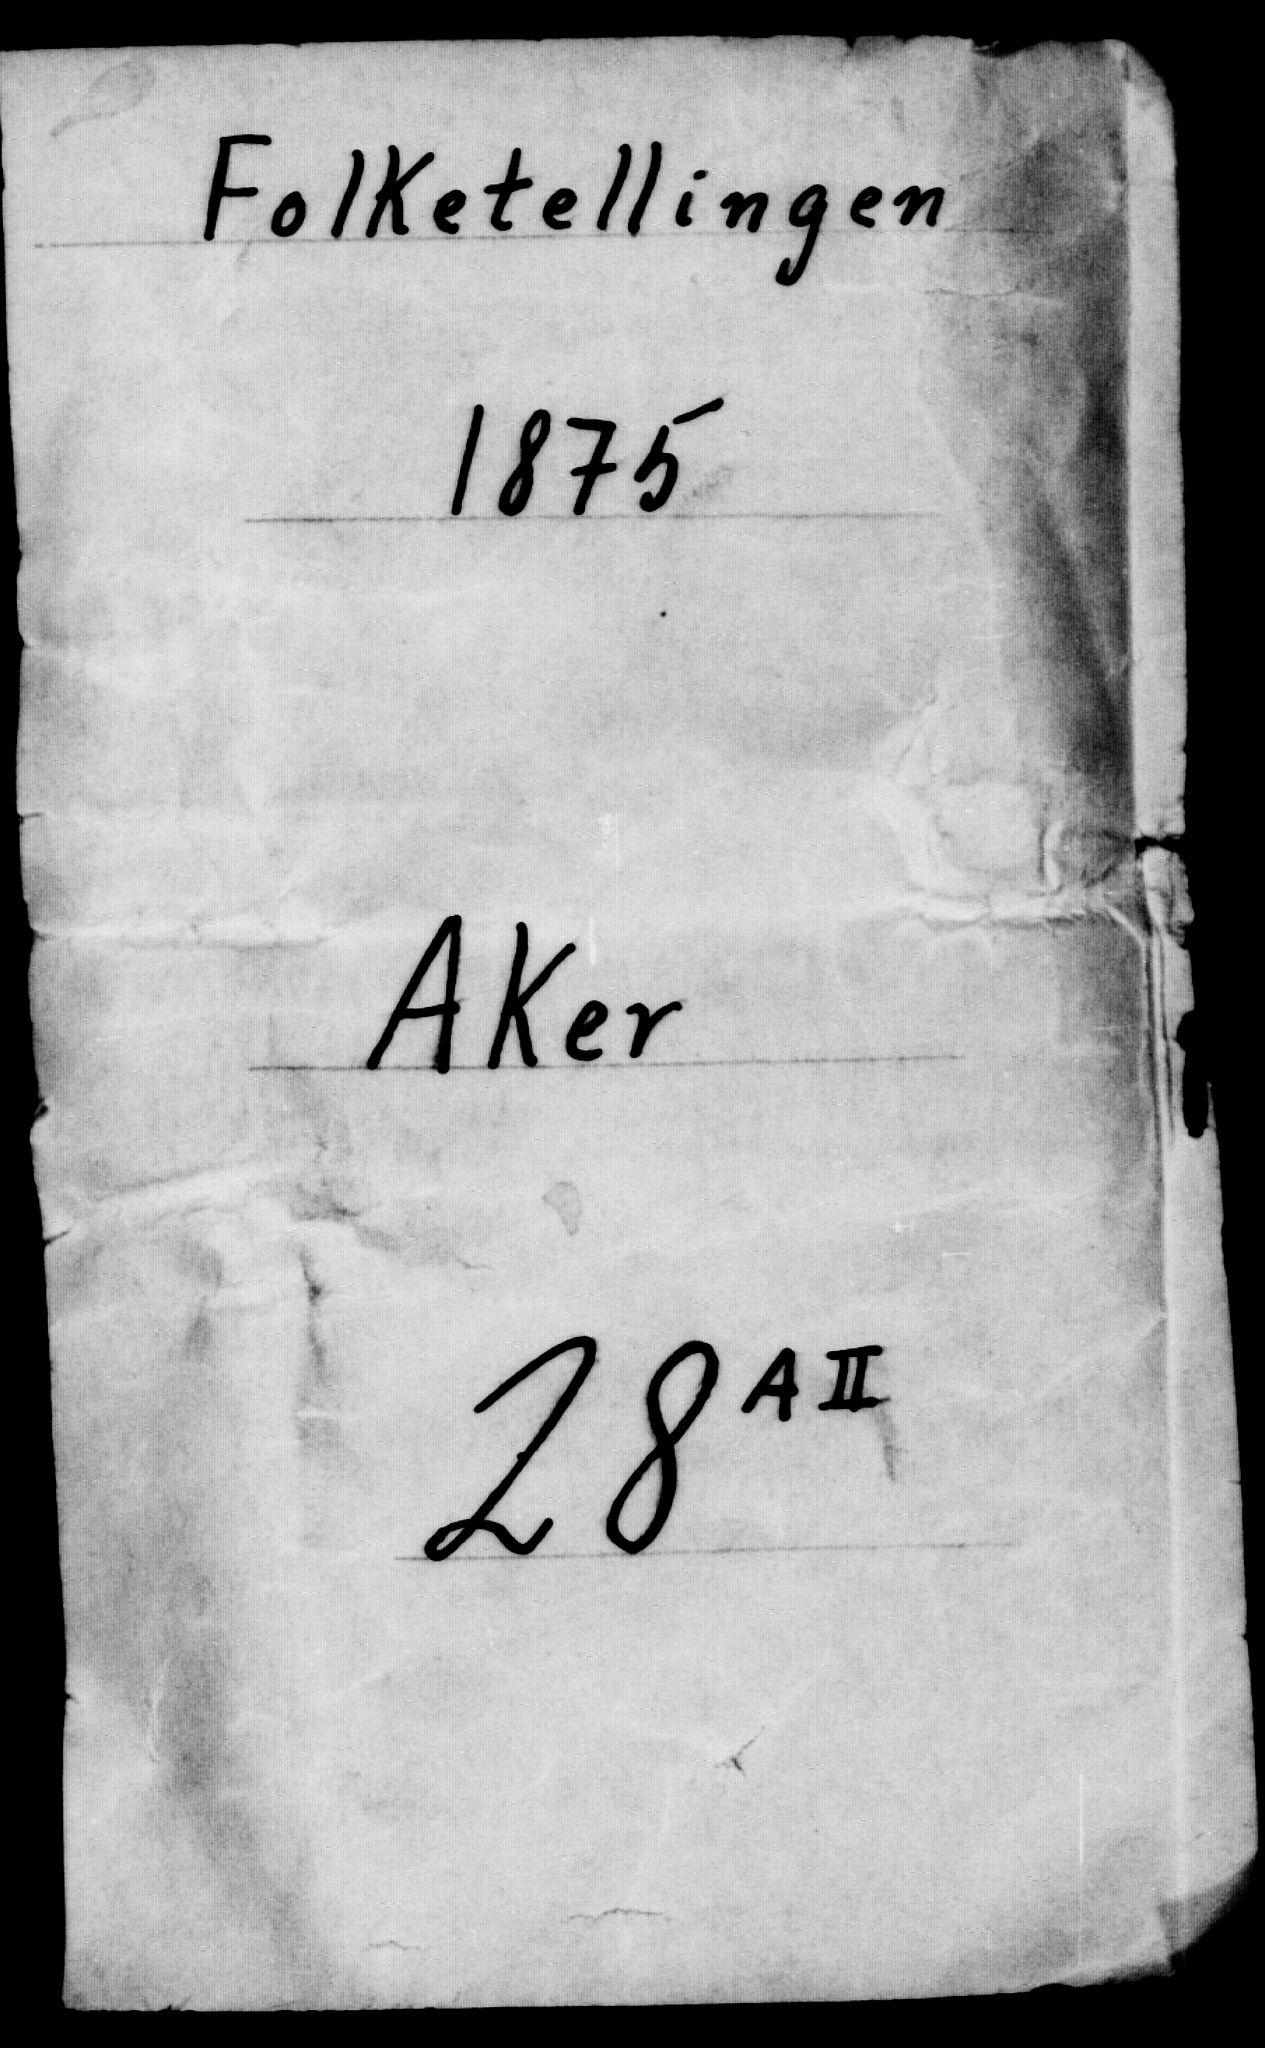 Folketellingen
1875
Aker
28 A II